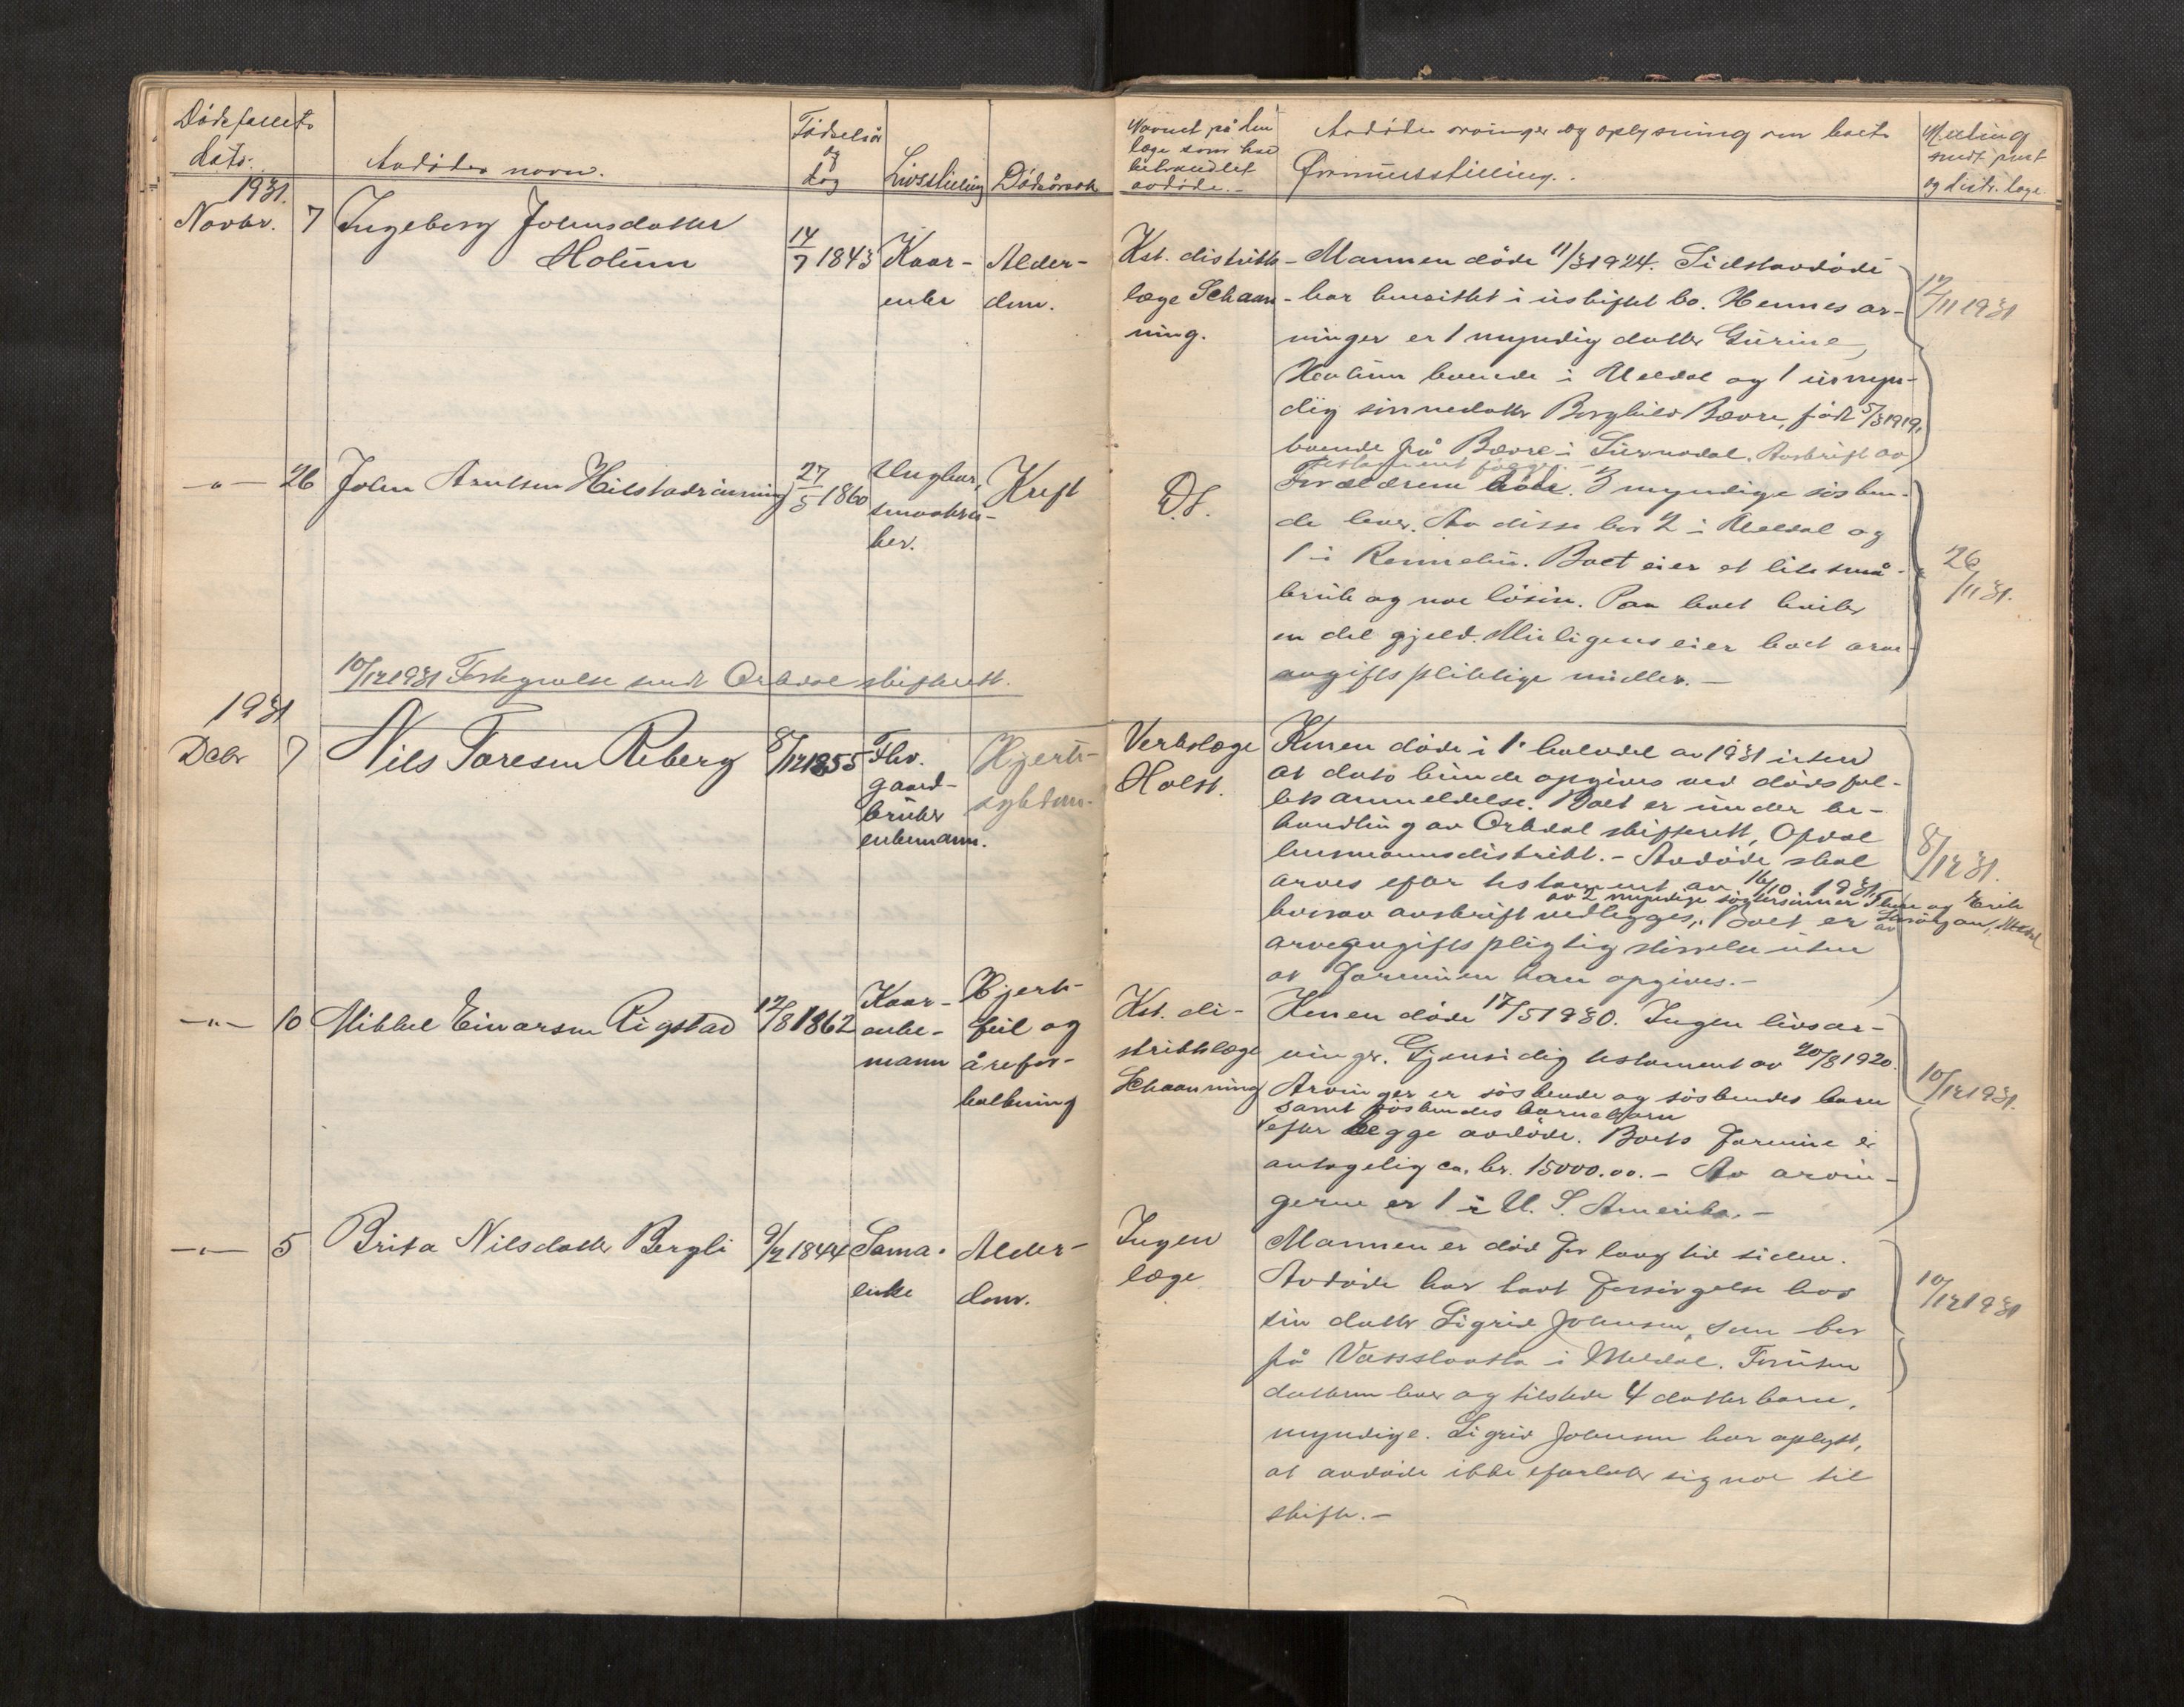 Dødsfallets
dato.
Avdødes navn.
Fødselsår
og
dag
Livsstilling
Dødsårsak
Navnet på den
læge som har
behandlet
avdøde.-
Avdødes arvinger og oplysning om boets
formuesstilling.
Melding
sendt prest
og distr. læge.
1931.
Novbr. 7 Ingeborg Johnsdatter
Holum
14/7 1843
Kaar-
enke
Alder-
dom.
Kst. distrikts-
læge Schaan-
ning.
Mannen døde 11/3 1924. Sidstavdøde
har hensittet i uskiftet bo. Hennes ar-
vinger er 1 myndig datter Gurine
boende i Meldal og 1 umyn-
dig sønnedatter Borghild Bævre, født 5/3 1919,
boende på Bævre i Surnadal. Avskrift av
testament følger.-
12/11 1931
-"- 26 John Arntsen Hilstadrønning
27/5 1860
Ungkar,
smaabru-
ker.
Kreft
D.S.
Forældrene døde. 3 myndige søsken-
de lever. Av disse bor 2 i Meldal og
1 i Rennebu. Boet eier et lite små-
bruk og noe løsøre. Paa boet hviler
en del gjeld. Muligens eier boet arve-
avgiftspliktige midler.-
26/11 31.
10/12 1931 Fortegnelse sendt Orkdal skifterett.
1931
Debr 7 Nils Toresen Reberg
8/12 1855
Fhv.
gaard-
bruker
enkemann.
Hjerte-
sykdom.
Verkslæge
Holst.
Konen døde i 1. halvdel av 1931 uten
at dato kunde opgives ved dødsfal-
lets anmeldelse. Boet er under be-
handling av Orkdal skifterett, Opdal
lensmannsdistrikt.- Avdøde skal
arves efter testament av 16/10 1931,
av 2 myndige søstersønner Thore og Erik
hvorav avskrift vedlegges. Boet er
arveavgiftspligtig størrelse uten
at formuen kan opgives.-
8/12 31.
-"- 10 Mikkel Einarsen Rigstad
12/8 1862
Kaar-
enke-
mann
Hjerte-
feil og
årefor-
kalkning
Kst. di-
striktslæge
Schaanning
Konen døde 17/5 1930. Ingen livsar-
vinger. Gjensidig testament av 20/8 1920.
Arvinger er søskende og søskendes barn
samt søskendes barnebarn
efter begge avdøde. Boets formue er
antagelig ca. kr. 15000.00.- Av arvin-
gerne er 1 i U. S. Amerika.-
10/12 1931.
-"- 5 Brita Nilsdatter Bergli
9/2 1844
Sama.
enke
Alder-
dom.
Ingen
læge
Mannen er død for lang tid siden.
Avdøde har havt forsørgelse hos
sin datter Sigrid Johnsen, som bor
på Vasslaatta i Meldal. Foruten
datteren lever og tilstede 4 datterbarn,
myndige. Sigrid Johnsen har oplyst,
at avdøde ikke efterlater sig noe til
skifte.-
10/12 1931